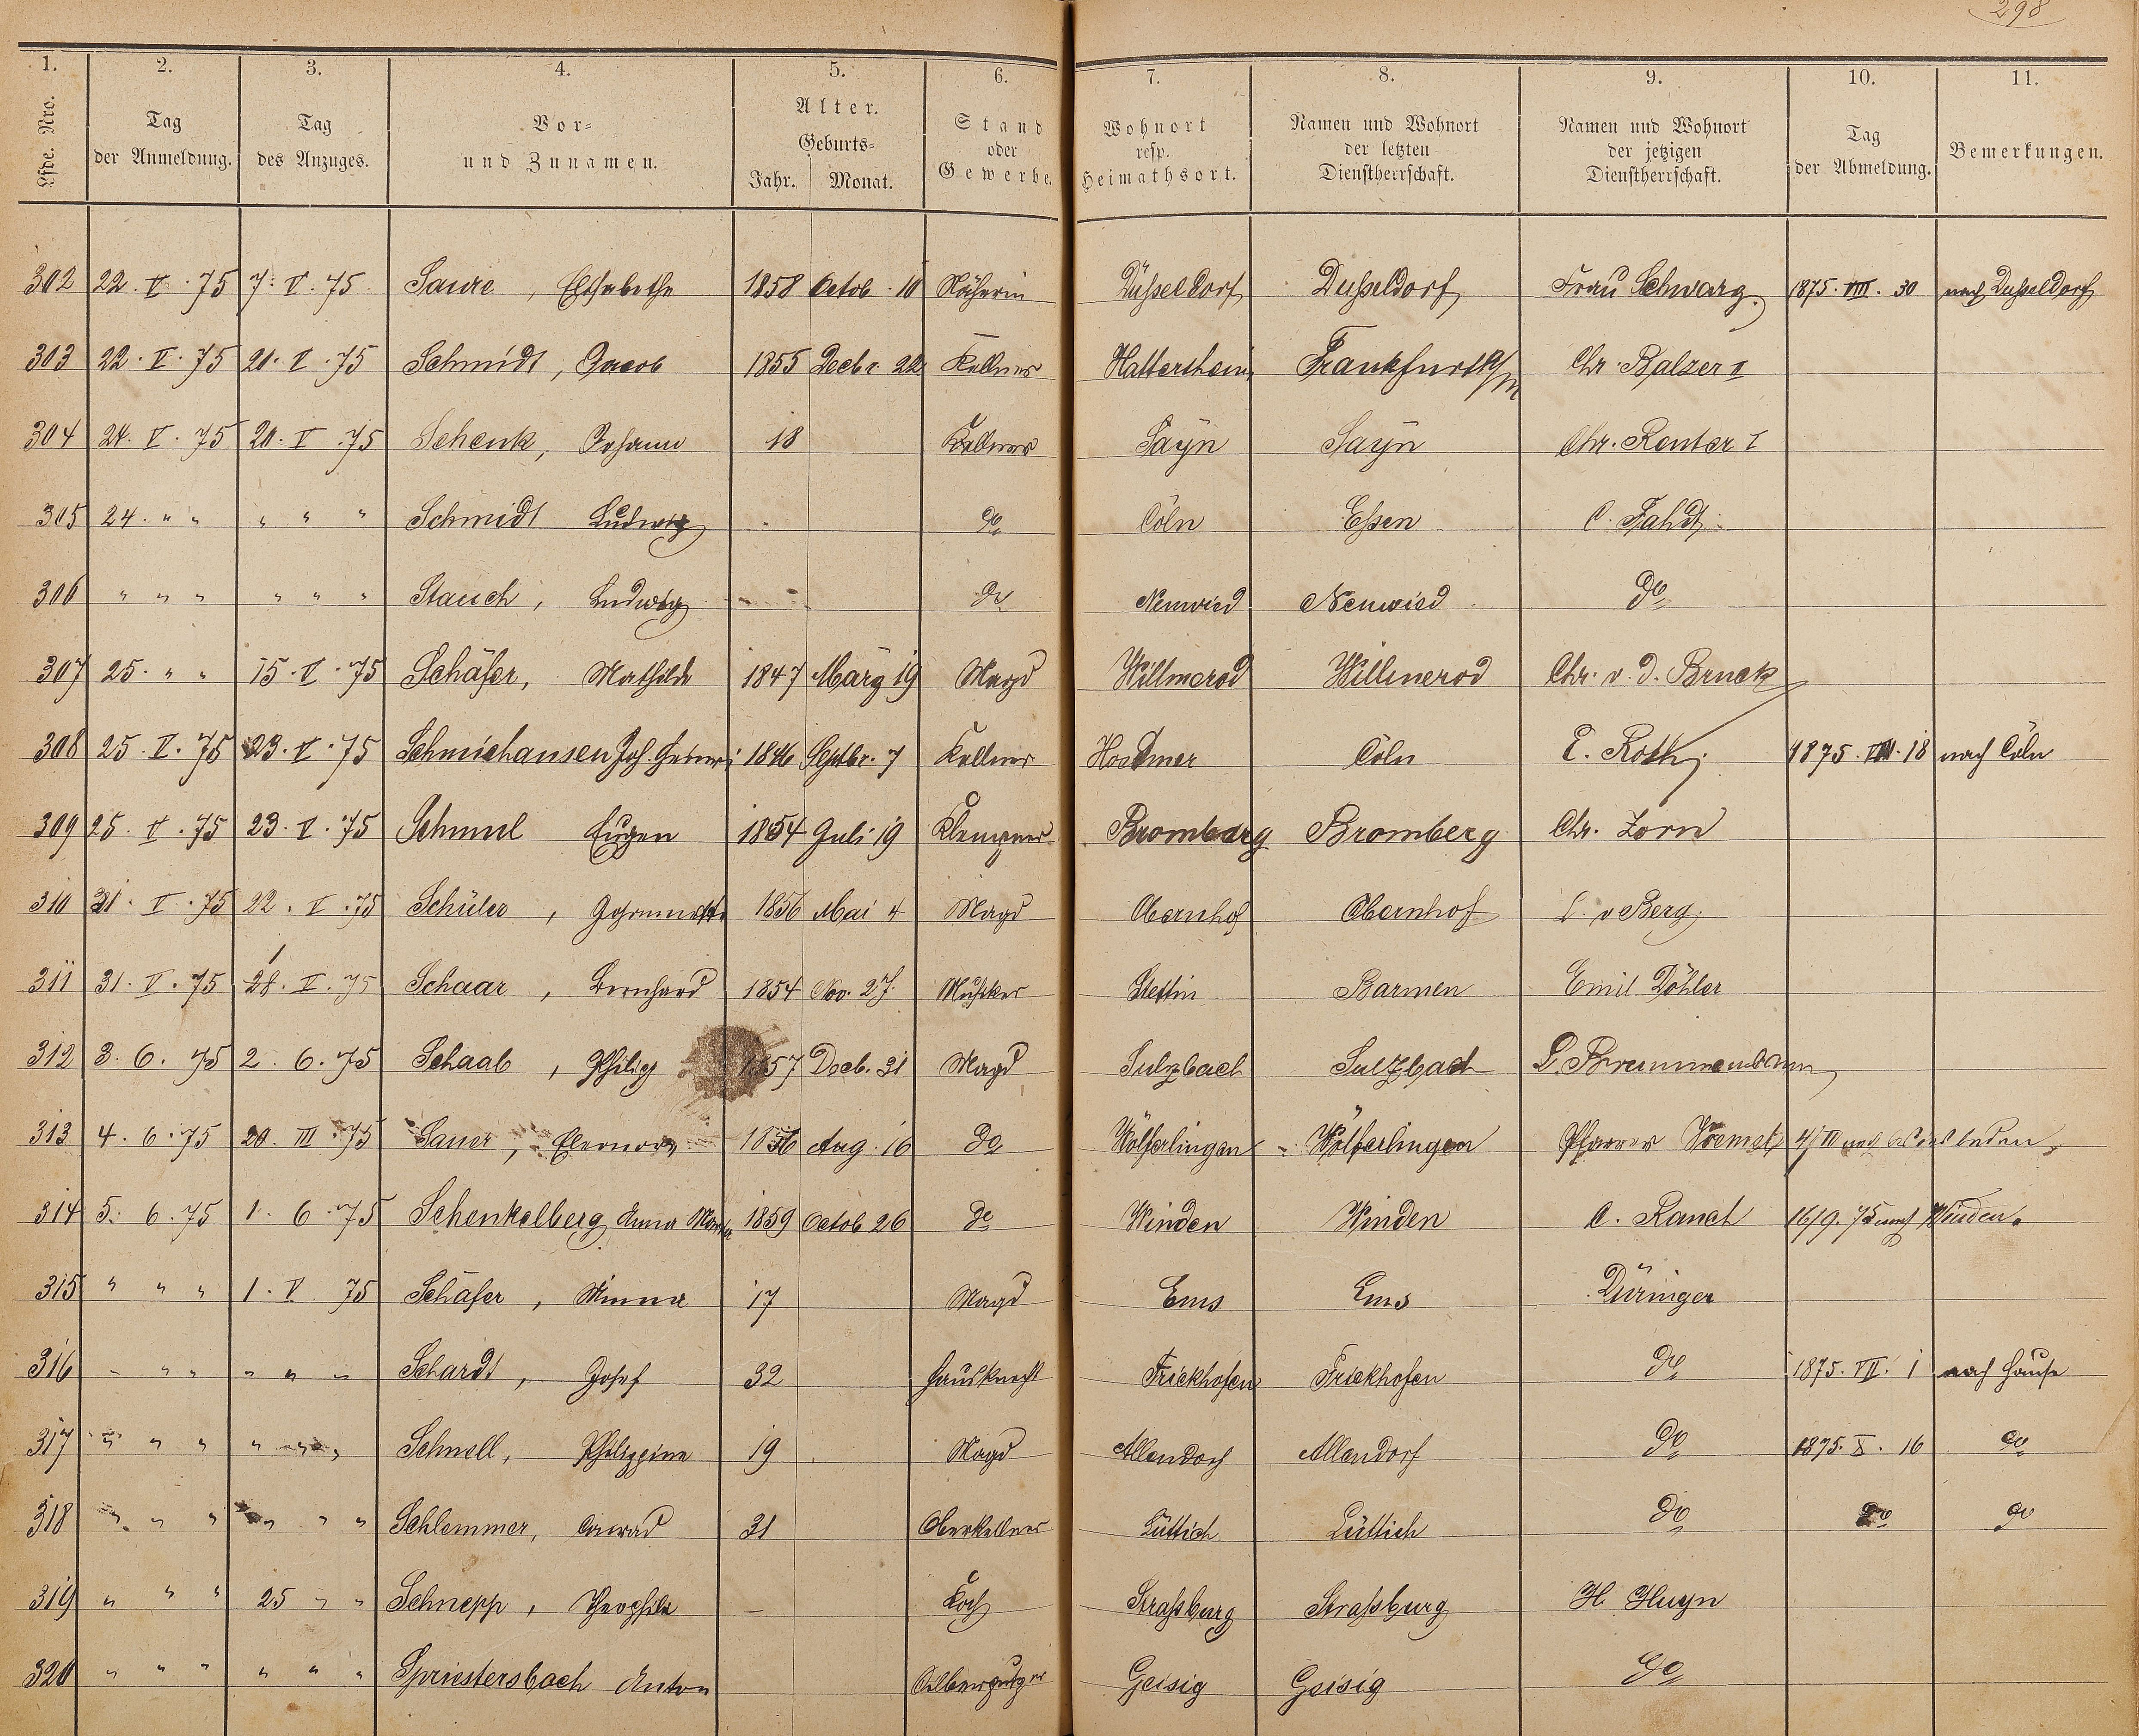 298
1. 2. 3. 4. 5. 6. 7. 8. 9. 10. 11.
Lfde. Nro. Tag der Anmeldung. Tag des Anzuges. Vor- und Zunamen. Alter. Geburts- Jahr. Monat. Stand oder Gewerbe. Wohnort resp. Heimathsort. Namen und Wohnort der letzten Dienstherrschaft. Namen und Wohnort der jetzigen Dienstherrschaft. Tag der Abmeldung. Bemerkungen.
302 22. V. 75 7. V. 75 Saure, Elisabethe 1858 Octob. 10 Näherin Düsseldorf Düsseldorf Frau Schwarz 1875. VIII. 30 nach Düsseldorf
303 22. V. 75 21. V. 75 Schmidt, Jacob 1855 Decbr. 22 Kellner Hattersheim Frankfurt a/m Chr. Balzer II
304 24. V. 75 20. V. 75 Schenk, Johann 18 Kellner Sayn Sayn Chr. Reuter I
305 24. " " " " " Schmidt Ludwig do Cöln Essen C. Fahdt
306 " " " " " " Stauch, Ludwig do Neuwied Neuwied do
307 25. " " 15. V. 75 Schäfer, Mathilde 1847 März 19 Magd Willmerod Willmerod Chr. v. d. Bruck
308 25. V. 75 23. V. 75 Schmichausen Joh. 1846 Septbr. 7 Kellner Cöln E. Roth 1875. VIII. 18 nach Cöln
309 25. V. 75 23. V. 75 Eugen 1854 Juli 19 Klempner Bromberg Bromberg Chr. Zorn
310 31. V. 75 22. V. 75 Schüler, 1856 Mai 4 Magd Obernhof Obernhof v Berg
311 31. V. 75 28. V. 75 Schaar, Bernhard 1854 Nov. 27 Musiker Stettin Barmen Emil Döhler
312 3. 6. 75 2. 6. 75 Schaab, Philip 1857 Decb. 31 Magd Sulzbach Sulzbach
313 4. 6. 75 20. III. 75 Sauer, Eleonore 1856 Aug. 16 do Wölferlingen Wölferlingen Pfarrer
314 5. 6. 75 1. 6. 75 Schenkelberg Anna Maria 1859 Octob 26 do Winden Winden 16/9. 75 nach Winden.
315 " " " 1. V. 75 Schäfer, Minna 17 Magd Ems Ems Düringer
316 " " " " " " Schardt, Josef 32 Hausknecht Frickhofen Frickhofen do 1875. VII. 1 nach Hause
317 " " " " " " Schnell, Philippine 19 Magd Allendorf Allendorf do 1875. X. 16 do
318 " " " " " " Schlemmer, Conrad 31 Oberkellner Lüttich Lüttich do do do
319 " " " 25 " " Schnepp, Theophile — Koch Strassburg Strassburg H Huyn
320 " " " " " " Spriestersbach Anton Silberputzer Geisig Geisig do